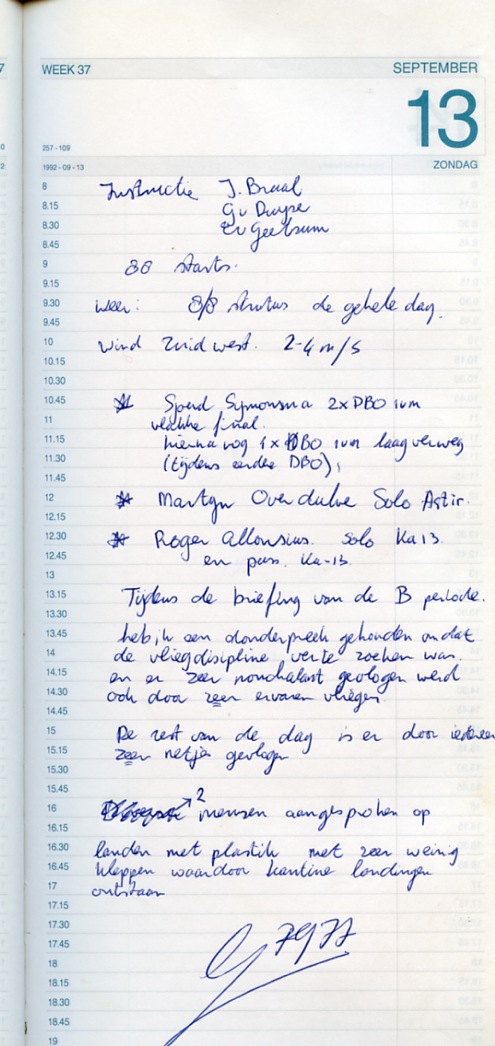 WEEK 37 SEPTEMBER
13
257 - 109
1992 - 09 - 13 ZONDAG
8 Instructie J. Braal
8.15 G v Duype
8.30 E v Geelsum
8.45
9 80 starts.
9.15
9.30 weer: 8/8 stratus de gehele dag.
9.45
10 wind Zuid west. 2-4 m/s
10.15
10.30
10.45 * Sjoerd Symonsma 2xDBO ivm
11 vlakke final.
11.15 hierna nog 1x DBO ivm laag verweg
11.30 (tijdens eerdere DBO),
11.45
12 * Martyn Overduive Solo Astir.
12.15
12.30 * Roger Allonsius. Solo Ka 13
12.45 en pass. Ka-13.
13
13.15 Tijdens de briefing van de B periode.
13.30
13.45 heb ik een donderpreek gehouden omdat
14 de vliegdiscipline ver te zoeken was.
14.15 en er zeer nonchalant gevlogen werd
14.30 ook door zeer ervaren vliegers.
14.45
15 De rest van de dag is er door iedereen
15.15 zeer netjes gevlogen
15.30
15.45
16 2 mensen aangesproken op
16.15
16.30 landen met plastik met zeer weinig
16.45 kleppen waardoor kantine landingen
17 ontstaan
17.15
17.30
17.45
18
18.15
18.30
18.45
19